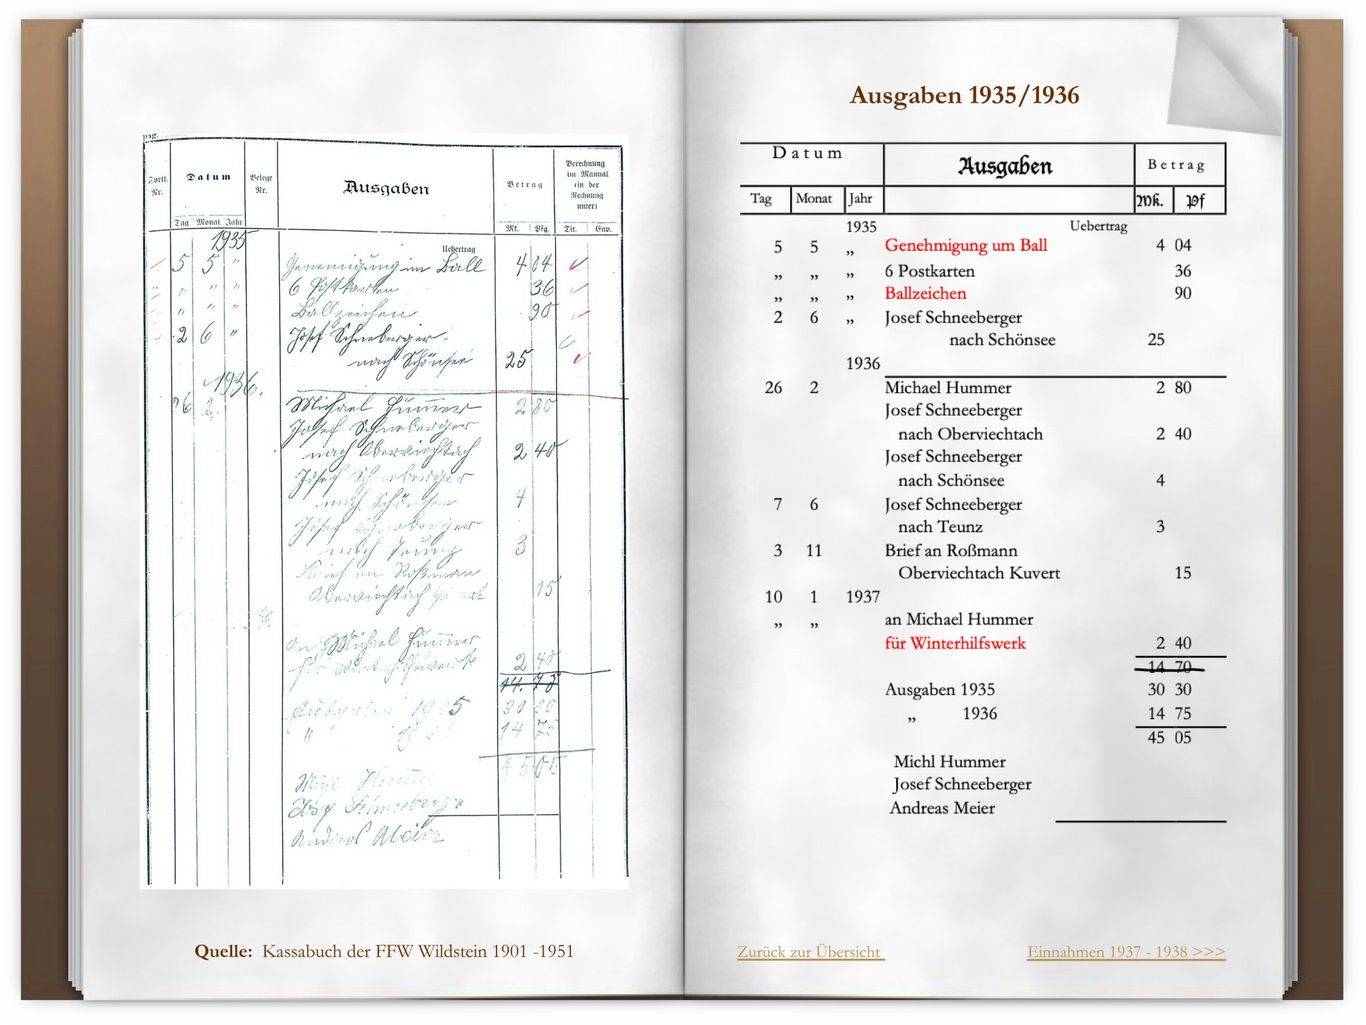 pag.
Fortl. Nr. Datum Belege Nr. Ausgaben Betrag Berechnung im Manual (in der Rechnung unter)
Tag Monat Jahr Mk. Pfg. Tit. Cap.
1935
Uebertrag
5 5 " Genemigung im Ball 4 04
" " " 6 Postkarten 36
" " " Ballzeichen 90
2 6 " Josef Schneeberger
nach Schönsee 25
1936.
26 2 Michael Hummer 2 80
Josef Schneeberger
nach Oberviechtach 2 40
Josef Schneeberger
nach Schönsee 4
Josef Schneeberger
nach Teunz 3
Brief an Roßman
Oberviechtach 15
An Michael Hummer
für Winterhilfswerk 2 40
14 70
Ausgaben 1935 30 30
" 1936 14 75
45 05
Michl Hummer
Josef Schneeberger
Andreas Meier
Quelle: Kassabuch der FFW Wildstein 1901 -1951
Ausgaben 1935/1936
Datum Ausgaben Betrag
Tag Monat Jahr Mk. Pf
1935 Uebertrag
5 5 „ Genehmigung um Ball 4 04
„ „ „ 6 Postkarten 36
„ „ „ Ballzeichen 90
2 6 „ Josef Schneeberger
nach Schönsee 25
1936
26 2 Michael Hummer 2 80
Josef Schneeberger
nach Oberviechtach 2 40
Josef Schneeberger
nach Schönsee 4
7 6 Josef Schneeberger
nach Teunz 3
3 11 Brief an Roßmann
Oberviechtach Kuvert 15
10 1 1937
„ „ an Michael Hummer
für Winterhilfswerk 2 40
14 70
Ausgaben 1935 30 30
„ 1936 14 75
45 05
Michl Hummer
Josef Schneeberger
Andreas Meier
Zurück zur Übersicht
Einnahmen 1937 - 1938 >>>